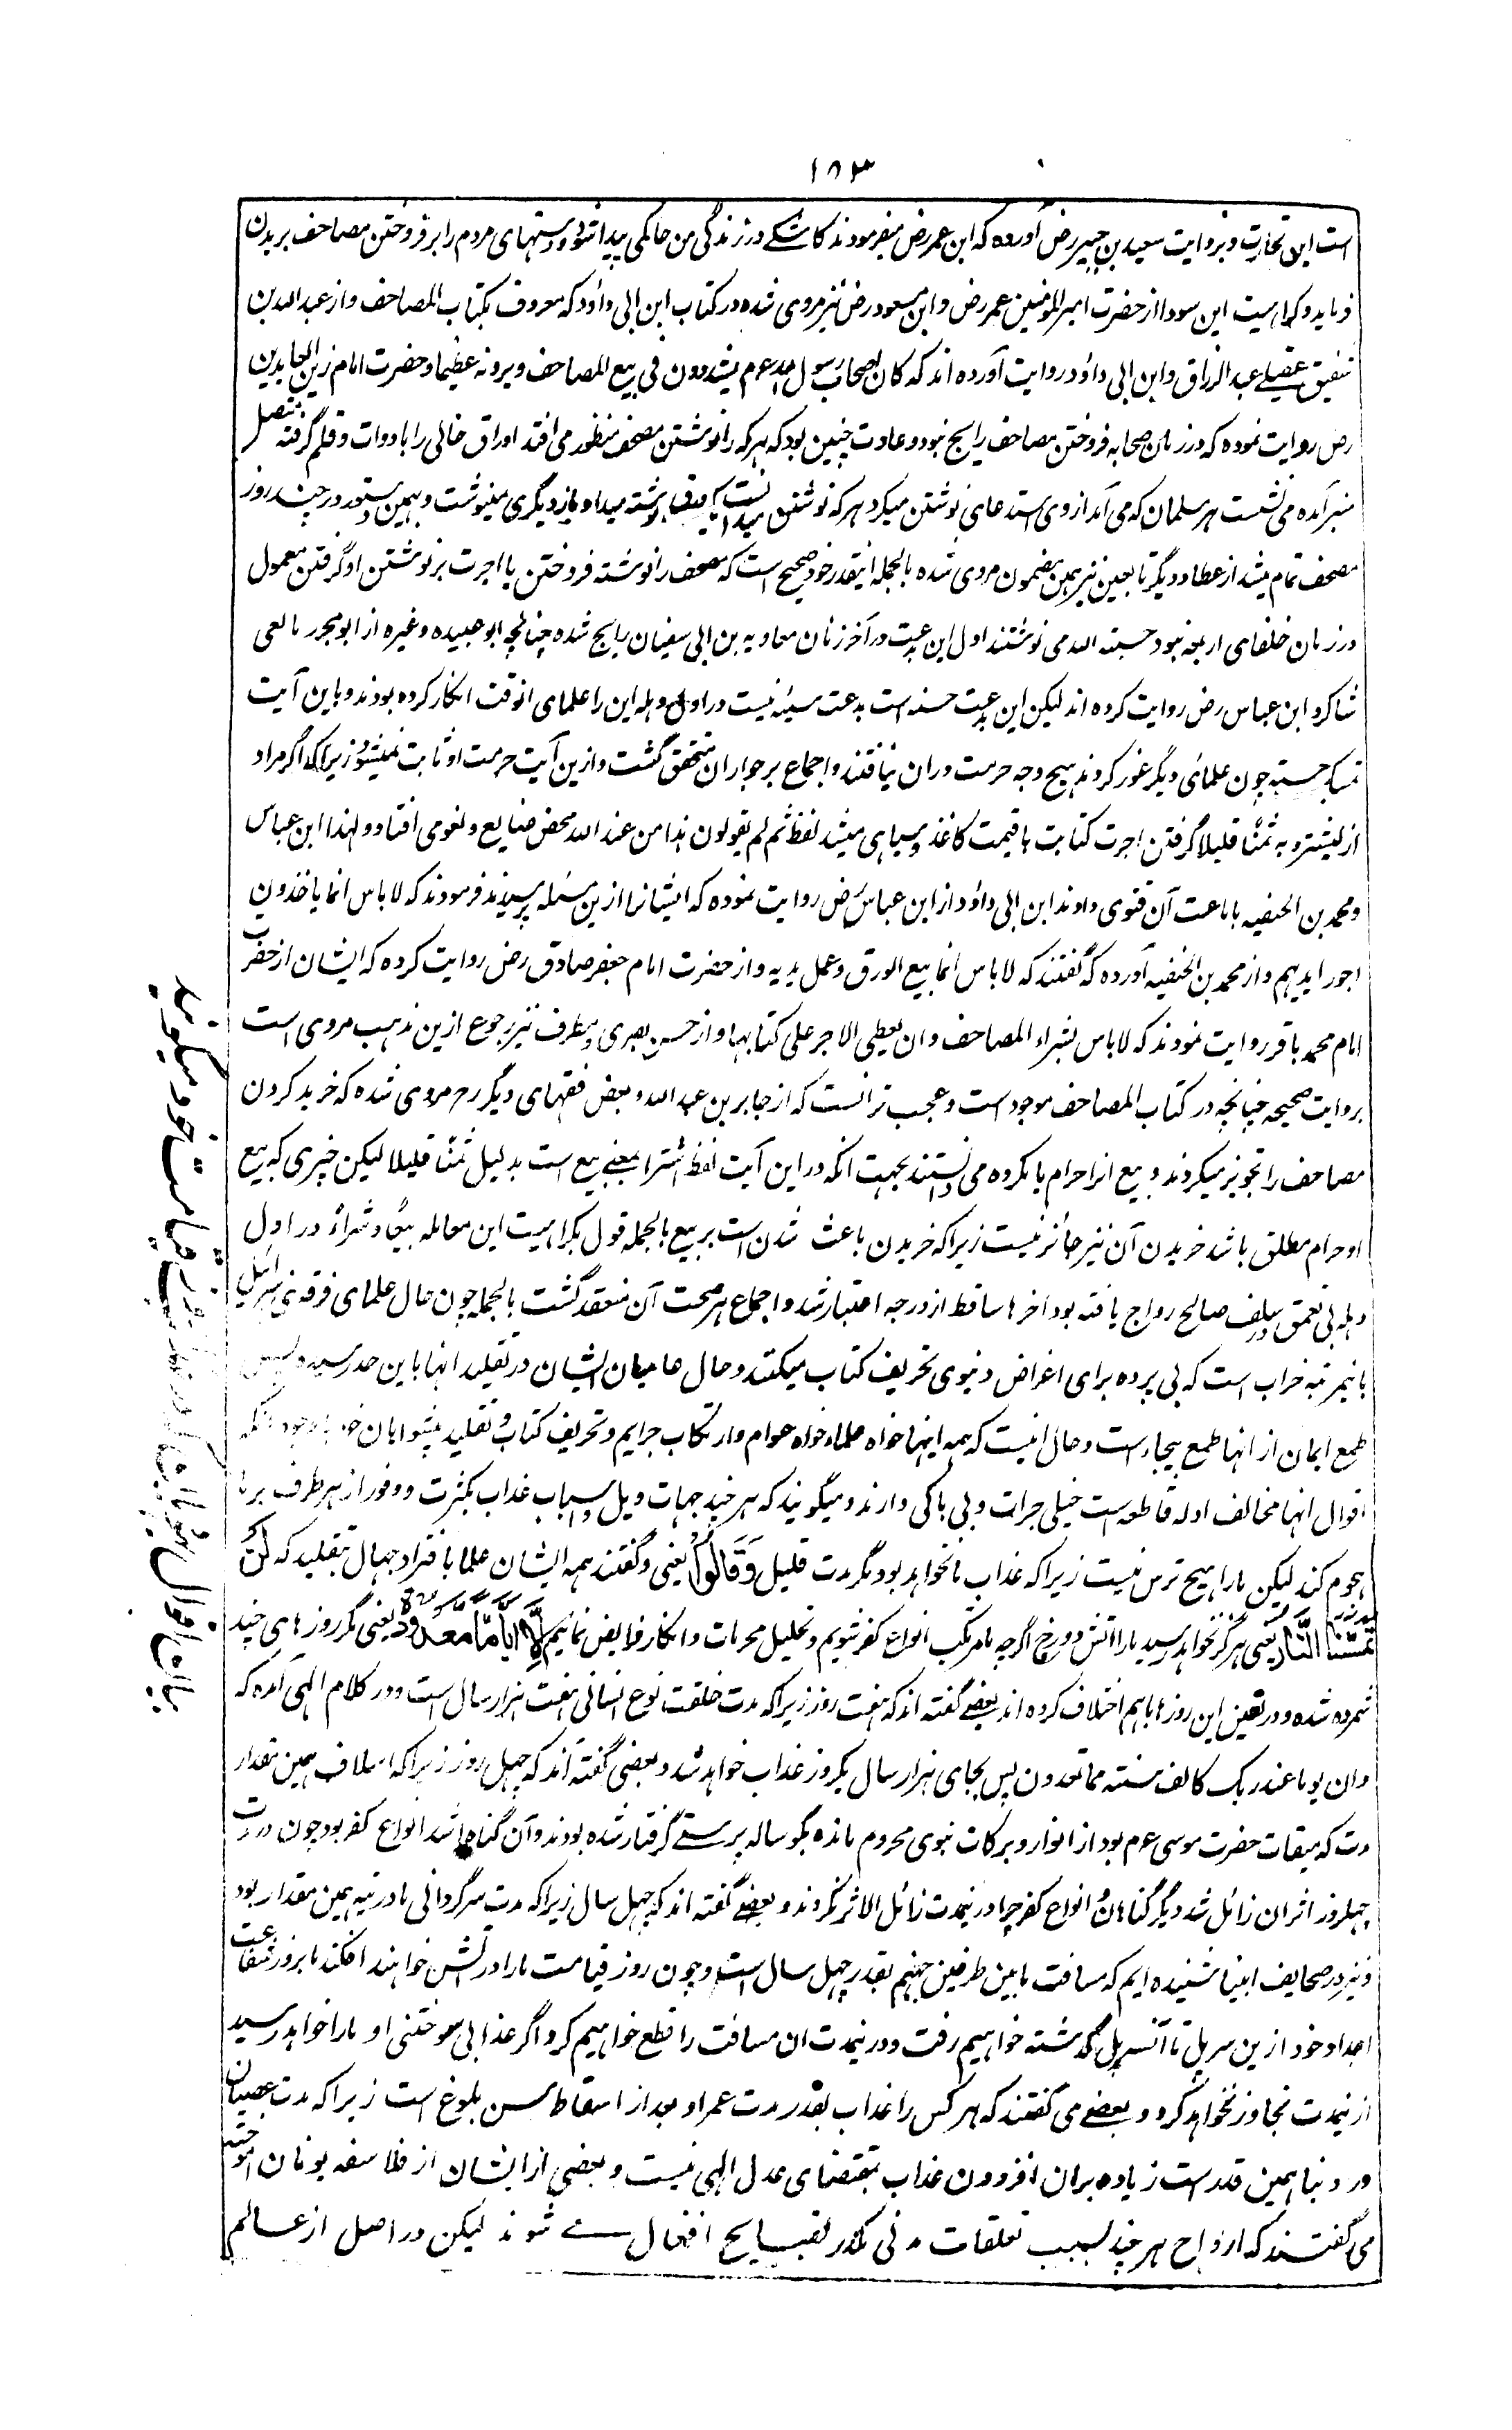 ۱۸۳
است این تجارت و بروایت سعید بن جبیر رض آورده که ابن عمر رض میفرمودند کاشکے در زندگی من حاکمی پیدا شود و دستهای مردم را بر فروختن مصاحف بریدن
فرماید و کراهیت این سودا از حضرت امیر المومنین عمر رض و ابن مسعود رض نیز مروی شده در کتاب ابن ابی داود که معروف بکتاب المصاحف و از عبد الله بن
شقیق عقیلے عبد الرزاق و ابن ابی داود روایت آورده اند که کان اصحاب رسول الله صلعم یشددون فی بیع المصاحف و یرونه عظیما و حضرت امام زین العابدین
رض روایت نموده که در زمان صحابه فروختن مصاحف رایج نبود و عادت چنین بود که هر که را نوشتن مصحف منظور می افتد اوراق خالی را با دوات و قلم گرفته متصل
منبر آمده می نشست هر مسلمان که می آمد از وی استدعای نوشتن میکرد هر که نوشتن میدانست یک ورق نوشته میداد باز دیگری مینوشت و بهمین دستور در چند روز
مصحف تمام میشد از عطا و دیگر تابعین نیز همین مضمون مروی شده بالجمله اینقدر خود صحیح است که مصحف را نوشته فروختن یا اجرت بر نوشتن او گرفتن معمول
در زمان خلفای اربعه نبود حسبة لله می نوشتند اول این بدعت در آخر زمان معاویه بن ابی سفیان رایج شده چنانچه ابو عبیده و غیره از ابو مجلز تابعی
شاگرد ابن عباس رض روایت کرده اند لیکن این بدعت حسنه است بدعت سیئه نیست در اول وهله این را علمای انوقت انکار کرده بودند و باین آیت
تمسک جسته چون علمای دیگر غور کردند هیچ وجه حرمت در ان نیافتند و اجماع بر جواز ان متحقق گشت و ازین آیت حرمت او ثابت نمیشود زیرا که اگر مراد
از لیشتروا به ثمنا قلیلا گرفتن اجرت کتابت یا قیمت کاغذ و سیاهی میشد لفظ ثم یقولون هذا من عند الله محض ضایع و لغو می افتاد و لهذا ابن عباس
و محمد بن الحنفیه باباحت آن فتوی دادند ابن ابی داود از ابن عباس رض روایت نموده که ایشانرا ازین مسئله پرسیدند فرمودند که لا باس انما یاخذون
اجور ایدیهم و از محمد بن الحنفیه آورده که گفتند که لا باس انما بیع الورق و عمل یدیه و از حضرت امام جعفر صادق رض روایت کرده که ایشان از حضرت
امام محمد باقر روایت نمودند که لا باس بشراء المصاحف و ان یعطی الاجر علی کتابها و از حسن بصری و مطرف نیز رجوع ازین مذهب مروی است
بروایت صحیحه چنانچه در کتاب المصاحف موجود است و عجب تر انست که از جابر بن عبد الله و بعض فقهای دیگر رح مروی شده که خرید کردن
مصاحف را تجویز میکردند و بیع انرا حرام یا مکروه می دانستند بجهت انکه در این آیت لفظ اشترا بمعنے بیع است بدلیل ثمنا قلیلا لیکن چیزی که بیع
او حرام مطلق باشد خریدن آن نیز جائز نیست زیرا که خریدن باعث شدن است بر بیع بالجمله قول بکراهیت این معامله بیعا و شراء در اول
وهله بی تعمق در سلف صالح رواج یافته بود اخرها ساقط از درجه اعتبار شد و اجماع بر صحت آن منعقد گشت بالجمله چون حال علمای فرقه بنی اسرائیل
باینمرتبه خراب است که بی پرده برای اغراض دنیوی تحریف کتاب میکنند و حال عامیان ایشان در تقلید انها باین حد رسیده پس
طمع ایمان از انها طمع بیجا است و حال انیست که همه اینها خواه علما خواه عوام در ارتکاب جرایم و تحریف کتاب و تقلید پیشوایان خود باوجود انکه
اقوال انها مخالف ادله قاطعه است خیلی جرات و بی باکی دارند و میگویند که هر چند جهات ویل و اسباب عذاب بکثرت و وفور از هر طرف بر ما
هجوم کند لیکن ما را هیچ ترس نیست زیرا که عذاب ما نخواهد بود مگر مدت قلیل وَقَالُوا یعنی و گفتند همه ایشان علما بافترا و جهال بتقلید که لَن
تَمَسَّنَا النَّارُ یعنی هرگز نخواهد رسید ما را آتش دوزخ اگرچه ما مرتکب انواع کفر شویم و تحلیل محرمات و انکار فرایض نمائیم إِلَّا أَيَّامًا مَّعْدُودَةً یعنی مگر روزهای چند
شمرده شده و در تعین این روزها باهم اختلاف کرده اند بعضے گفته اند که هفت روز زیرا که مدت خلقت نوع انسانی هفت هزار سال است و در کلام الهی آمده که
و ان یوما عند ربک کالف سنة مما تعدون پس بجای هزار سال یکروز عذاب خواهد شد و بعضی گفته اند که چهل روز زیرا که اسلاف همین مقدار
مدت که میقات حضرت موسی ع م بود از انوار و برکات نبوی محروم مانده بگوساله پرستے گرفتار شده بودند و آن گناه اشد انواع کفر بود چون در مدت
چهلروز اثر ان زائل شد دیگر گناهان و انواع کفر چرا در نیمدت زائل الاثر نگردند و بعضے گفته اند که چهل سال زیرا که مدت سرگردانی ما در تیه همین مقدار بود
و نیز در صحایف انبیا شنیده ایم که مسافت مابین طرفین جهنم بقدر چهل سال است و چون روز قیامت ما را در آتش خواهند افکند ما بزور شفاعت
اجداد خود ازین سر پل تا آنسر پل گذشته خواهیم رفت و در نیمدت ان مسافت را قطع خواهیم کرد اگر عذابی سوختنی او ما را خواهد رسید
از نیمدت تجاوز نخواهد کرد و بعضے می گفتند که هر کس را عذاب بقدر مدت عمر او بعد از اسقاط سن بلوغ است زیرا که مدت عصیان
در دنیا همین قدر است زیاده بران افزودن عذاب بمقتضای عدل الهی نیست و بعضی از ایشان از فلاسفه یونان آموخته
می گفتند که ارواح هر چند بسبب تعلقات بدنی مکدر بقبایح افعال سے شوند لیکن در اصل از عالم
بیان اقوال یهودیان که در قیامت خود میگویند